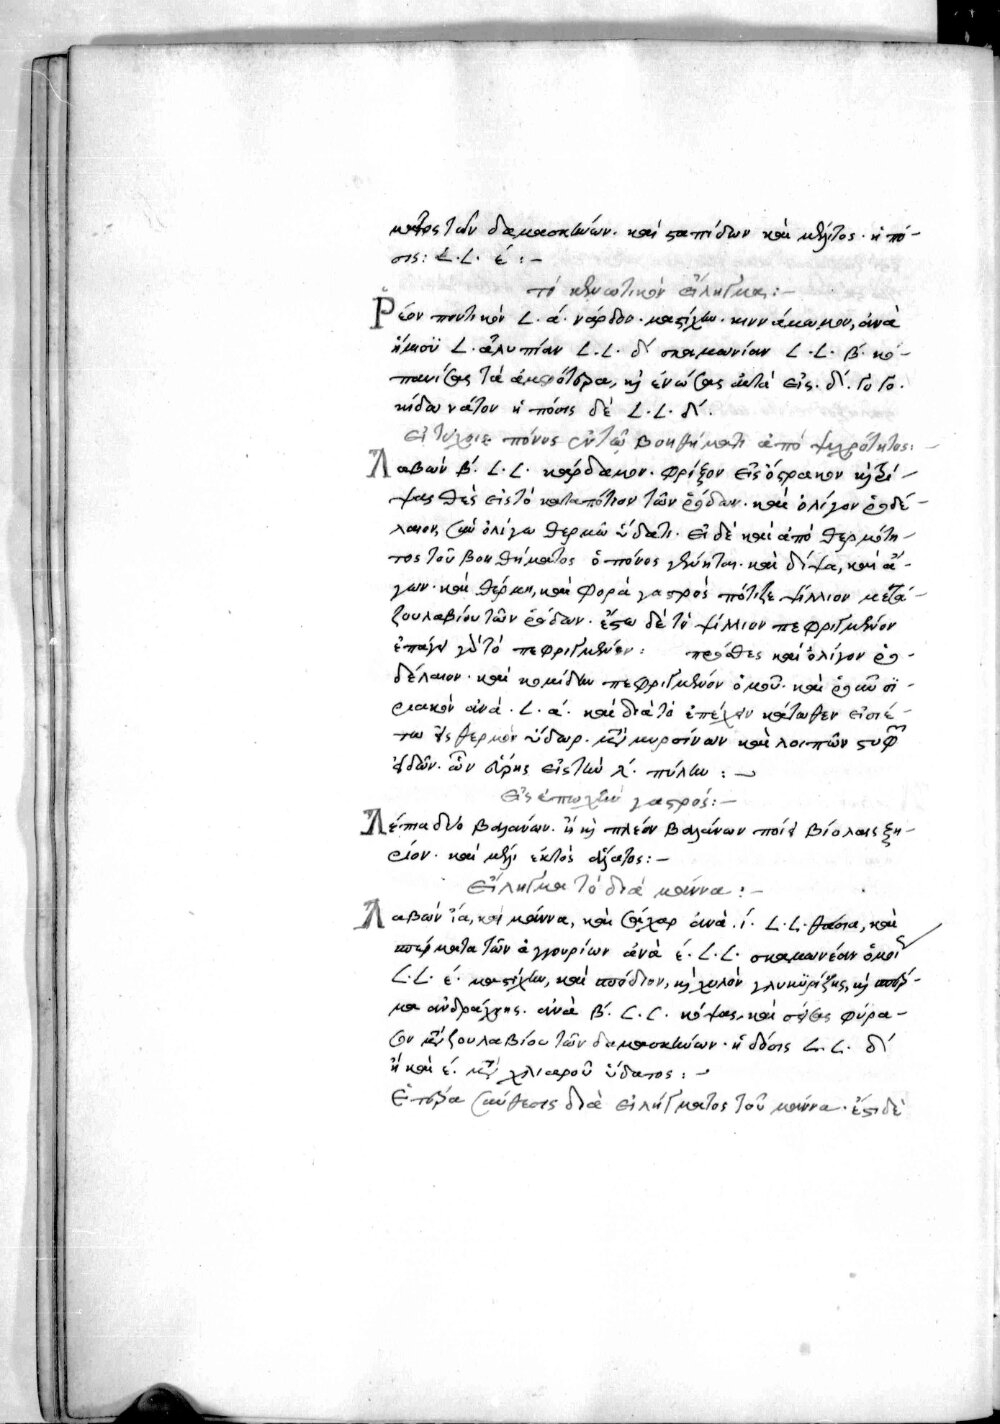 ματος τῶν δαμασκήνων· καὶ σταπίδων καὶ μέλιτος· ἡ πό-
σις: L.L. έ :-
τὸ κενωτικὸν εἴληγμα:-
Ῥέον ποντικὸν L. ά. νάρδου· μαστίχην· κιννάμωμον, ἀνὰ
ἥμισυ L. ἀλυπίαν L.L. δ΄ σκαμωνίαν L.L. β΄. κο-
πανίσας τὰ ἀμφότερα, καὶ ἑνώσας αὐτὰ εἰς.
κιδωνάτον ἡ πόσις δὲ L.L. δ΄.
Εἰ τύχοιε πόνος σὺν τῷ βοηθήματι ἀπὸ ψυχρότητος:-
Λαβὼν β΄. L.L. κάρδαμον· φρίξον εἰς ὄστρακον καὶ τρί-
ψας θὲς εἰς τὸ καταπότιον τῶν ῥόδων· καὶ ὀλίγον ῥοδέ-
λαιον, σὺν ὀλίγω θερμῶ ὕδατι· εἰ δὲ καὶ ἀπὸ θερμότη-
τος τοῦ βοηθήματος ὁ πόνος γένηται· καὶ δίψα, καὶ ἀ-
γων· καὶ θέρμη, καὶ φορὰ γαστρὸς πότιζε ψίλλιον μετὰ
ζουλαβίου τῶν ῥόδων· ἔστω δὲ τὸ ψίλλιον πεφριγμένον
ἐπάγει γὰρ τὸ πεφριγμένον: πρόσθες καὶ ὀλίγον ῥο-
δέλαιον· καὶ κομίδην πεφριγμένον ὁμοῦ· καὶ ῥοῦν συ-
ριακὸν ἀνὰ. L. ά. καὶ διὰ τὸ ἐπέχειν κάτωθεν εἰσιέ-
τω εἰς θερμὸν ὕδωρ· μετὰ μυρσίνων καὶ λοιπῶν στυφ
ειδῶν· ὧν εὕρης εἰς τὴν λ΄. πύλην :-
Εἰς ἐποχὴν γαστρός:-
Λέπια δύο βαλάνων· ἢ καὶ πλέον βαλάνων ποίει βίολαις ξη-
ρίον· καὶ μέλι ἐκτὸς ἅλατος:-
Εἴληγμα τὸ διὰ μάννα :-
Λαβὼν ἴα, καὶ μάννα, καὶ σάχαρ ἀνὰ. ί. L.L. καὶ
σπέρματα τῶν ἀγγουρίων ἀνὰ έ. L.L. σκαμωνέαν ὁμοί
L.L. έ. μαστίχην, καὶ σπόδιον, καὶ χυλὸν γλυκυρίζης, καὶ σπέρ-
μα ἀνδράχνης. ἀνὰ β΄. L.L. κόψας, καὶ σήσας φύρα-
σον μετὰ ζουλαβίου τῶν δαμασκήνων· ἡ δόσις L.L. δ΄
ἢ καὶ έ. μετὰ χλιαροῦ ὕδατος :-
Ἑτέρα σύνθεσις διὰ εἰλήγματος τοῦ μάννα· ἔστι δὲ